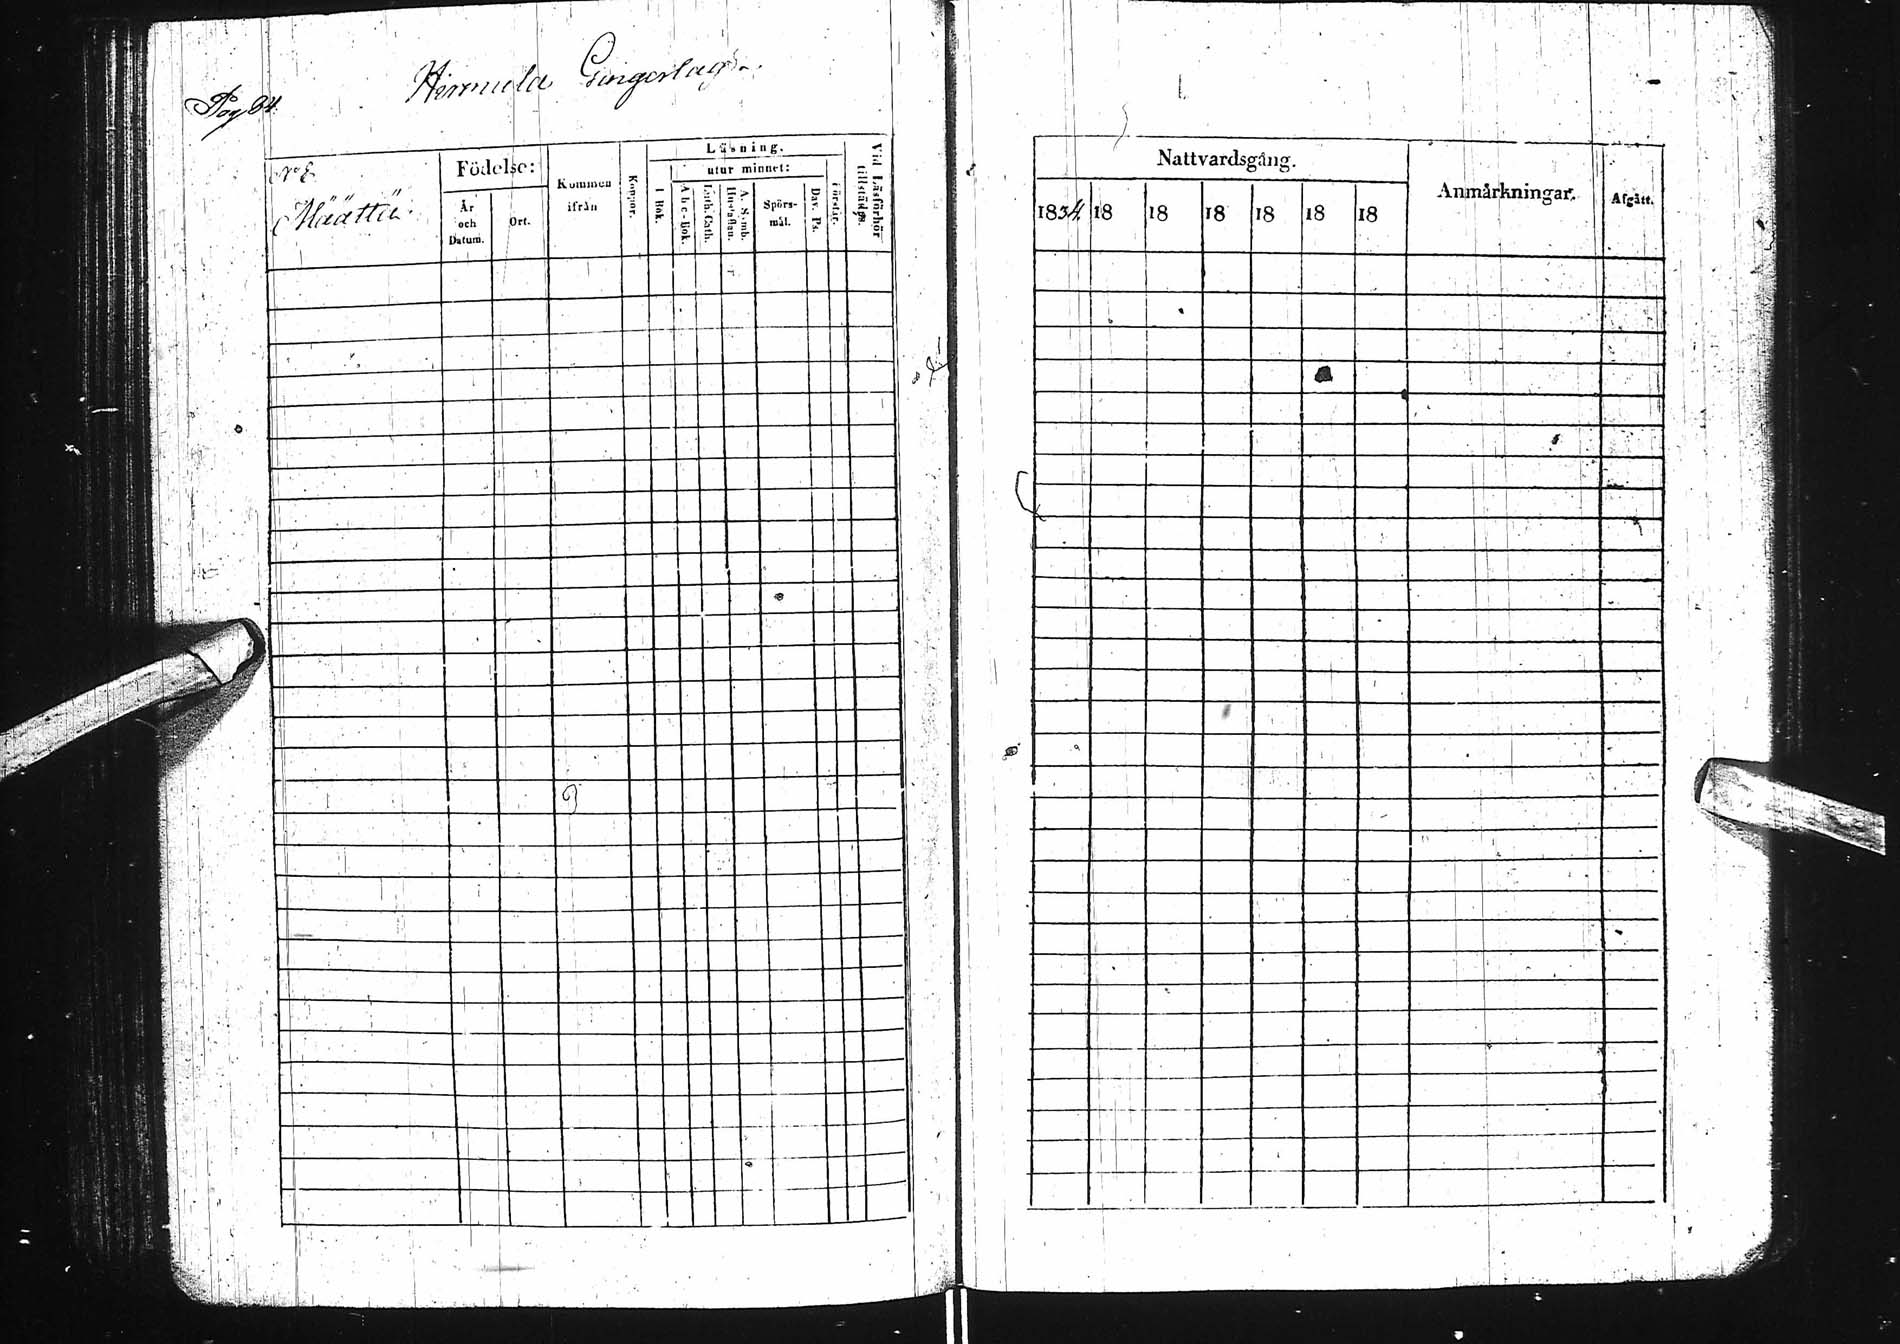 Pag 84.
Hirmula Gingerlag
No 8
Määttä.
Födelse:
År och Datum.
Ort.
Kommen ifrån
Koppor.
Läsning.
utur minnet:
I Bok.
A b c-Bok.
Luth. Cath.
A. S-mb. Hustaflan.
Spörs-mål.
Dav. Ps.
Förstår.
Vid Läsförhör tillstädes.
Nattvardsgång.
1834 18 18 18 18 18 18
Anmärkningar.
Afgått.